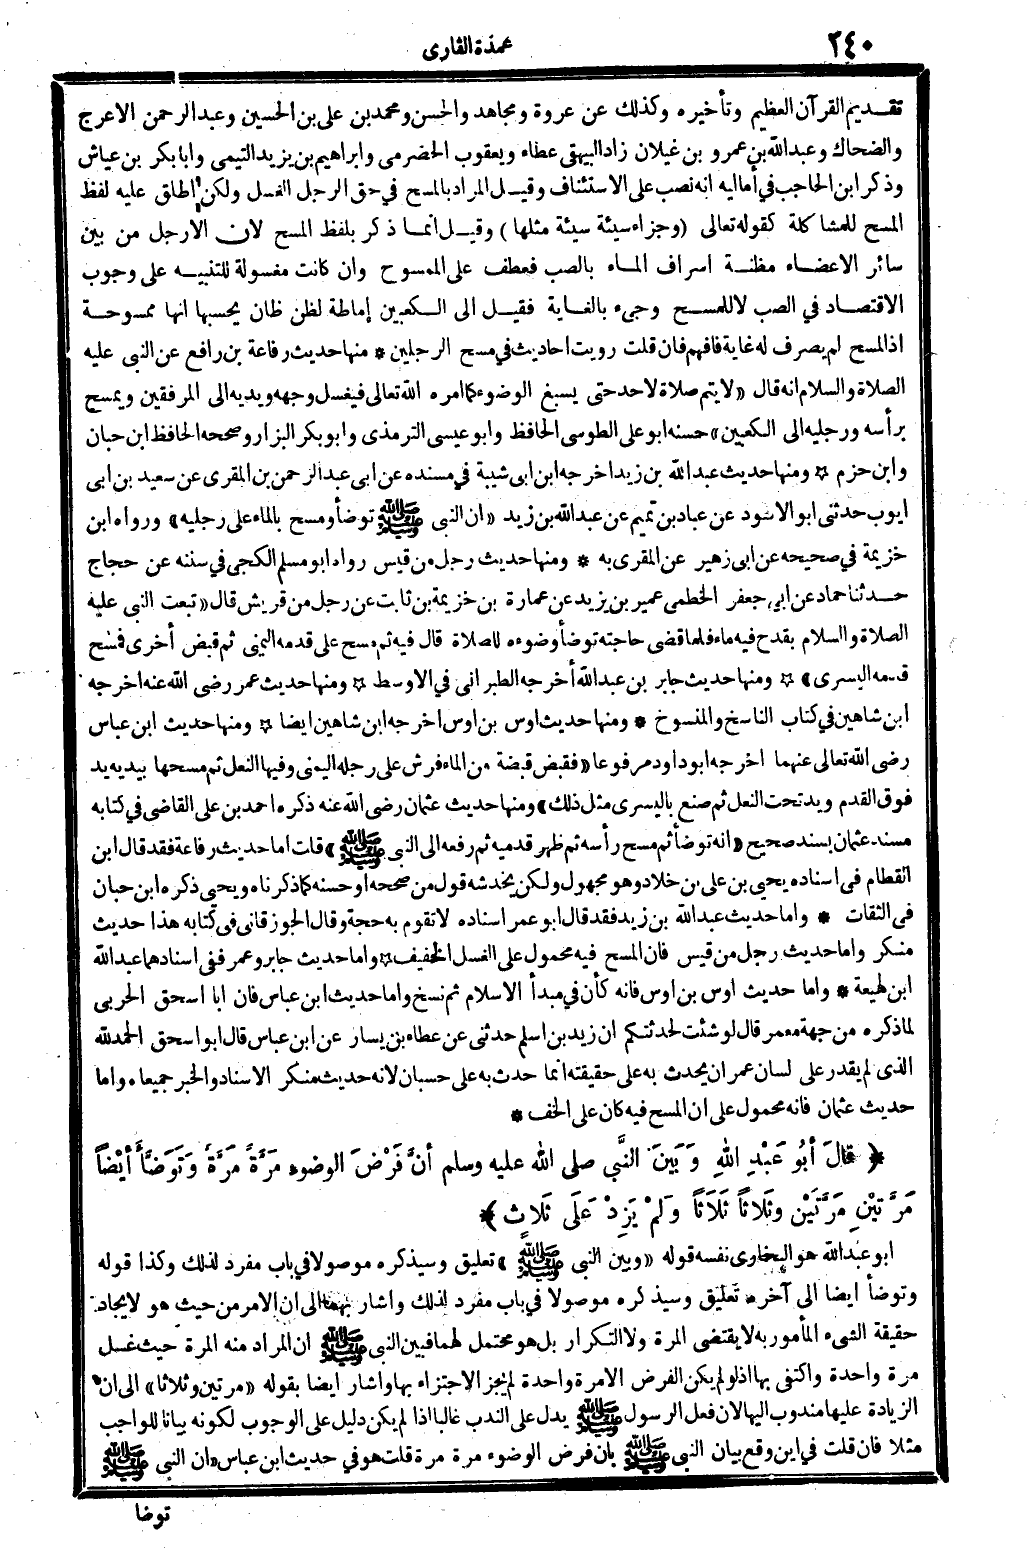 ٢٤٠
عمدة القارى
تقديم القرآن العظيم وتأخيره وكذلك عن عروة ومجاهد والحسن ومحمد بن على بن الحسين وعبد الرحمن الاعرج
والضحاك وعبد الله بن عمرو بن غيلان زاد البيهقى عطاء ويعقوب الحضرمى وابراهيم بن يزيد التيمى وابا بكر بن عياش
وذكر ابن الحاجب في أماليه انه نصب على الاستئناف وقيل المراد بالمسح في حق الرجل الغسل ولكن اطلق عليه لفظ
المسح للمشاكلة كقوله تعالى (وجزاء سيئة سيئة مثلها) وقيل انما ذكر بلفظ المسح لان الارجل من بين
سائر الاعضاء مظنة اسراف الماء بالصب فعطف على الممسوح وان كانت مغسولة للتنبيه على وجوب
الاقتصاد في الصب لا للمسح وجىء بالغاية فقيل الى الكعبين إماطة لظن ظان يحسبها انها ممسوحة
اذ المسح لم يصرف له غاية فافهم فان قلت رويت احاديث في مسح الرجلين * منها حديث رفاعة بن رافع عن النبى عليه
الصلاة والسلام انه قال «لا يتم صلاة لاحد حتى يسبغ الوضوء كما امره الله تعالى فيغسل وجهه ويديه الى المرفقين ويمسح
برأسه ورجليه الى الكعبين» حسنه ابو على الطوسى الحافظ وابو عيسى الترمذى وابو بكر البزار وصححه الحافظ ابن حبان
وابن حزم ☆ ومنها حديث عبد الله بن زيد اخرجه ابن ابى شيبة في مسنده عن ابى عبد الرحمن بن المقرى عن سعيد بن ابى
ايوب حدثنى ابو الاسود عن عباد بن تميم عن عبد الله بن زيد «ان النبى ﷺ توضأ ومسح بالماء على رجليه» ورواه ابن
خزيمة في صحيحه عن ابى زهير عن المقرى به * ومنها حديث رجل من قيس رواه ابو مسلم الكجى في سننه عن حجاج
حدثنا حماد عن ابى جعفر الخطمى عمير بن يزيد عن عمارة بن خزيمة بن ثابت عن رجل من قريش قال «تبعت النبى عليه
الصلاة والسلام بقدح فيه ماء فلما قضى حاجته توضأ وضوءه للصلاة قال فيه ثم مسح على قدمه اليمنى ثم قبض أخرى فمسح
قدمه اليسرى» ☆ ومنها حديث جابر بن عبد الله أخرجه الطبرانى في الاوسط ☆ ومنها حديث عمر رضى الله عنه اخرجه
ابن شاهين في كتاب الناسخ والمنسوخ * ومنها حديث اوس بن اوس اخرجه ابن شاهين ايضا ☆ ومنها حديث ابن عباس
رضى الله تعالى عنهما اخرجه ابو داود مرفوعا «فقبض قبضة من الماء فرش على رجله اليمنى وفيها النعل ثم مسحها بيديه يد
فوق القدم ويد تحت النعل ثم صنع باليسرى مثل ذلك» ومنها حديث عثمان رضى الله عنه ذكره احمد بن على القاضى في كتابه
مسند عثمان بسند صحيح «انه توضأ ثم مسح رأسه ثم ظهر قدميه ثم رفعه الى النبى ﷺ» قلت اما حديث رفاعة فقد قال ابن
القطام فى اسناده يحيى بن على بن خلاد وهو مجهول ولكن يخدشه قول من صححه او حسنه كما ذكرناه ويحيى ذكره ابن حبان
فى الثقات * واما حديث عبد الله بن زيد فقد قال ابو عمر اسناده لا تقوم به حجة وقال الجوزقانى فى كتابه هذا حديث
منكر واما حديث رجل من قيس فان المسح فيه محمول على الغسل الخفيف ☆ واما حديث جابر وعمر ففى اسنادهما عبد الله
ابن لهيعة * واما حديث اوس بن اوس فانه كأن في مبدأ الاسلام ثم نسخ واما حديث ابن عباس فان ابا اسحق الحربى
لما ذكره من جهة معمر قال لو شئت لحدثتكم ان زيد بن اسلم حدثنى عن عطاء بن يسار عن ابن عباس قال ابو اسحق الحمد لله
الذى لم يقدر على لسان عمر ان يحدث به على حقيقته انما حدث به على حسبان لانه حديث منكر الاسناد والخبر جميعا واما
حديث عثمان فانه محمول على ان المسح فيه كان على الخف *
﴿ قالَ أبُو عَبْدِ اللهِ وَبَيَنَ النَّبي صلى الله عليه وسلم أنَّ فَرْضَ الوضوء مَرَّةً مَرَّةً وَتَوَضَّأَ أَيْضاً
مَرَّتيْنِ مَرَّتَيْنِ وثَلاثاً ثَلَاثاً وَلَمْ يَزِدْ عَلَى ثَلاثٍ *﴾
ابو عبد الله هو البخاوى نفسه قوله «وبين النبى ﷺ» تعليق وسيذكره موصولا في باب مفرد لذلك وكذا قوله
وتوضأ ايضا الى آخره تعليق وسيذكره موصولا في باب مفرد لذلك واشار بهما الى ان الامر من حيث هو لايجاد
حقيقة الشىء المأمور به لا يقتضى المرة ولا التكرار بل هو محتمل لهما فبين النبى ﷺ ان المراد منه المرة حيث غسل
مرة واحدة واكتفى بها اذ لو لم يكن الفرض الا مرة واحدة لم يجز الاجتزاء بها واشار ايضا بقوله «مرتين وثلاثا» الى ان
الزيادة عليها مندوب اليها لان فعل الرسول ﷺ يدل على الندب غالبا اذا لم يكن دليل على الوجوب لكونه بيانا للواجب
مثلا فان قلت في اين وقع بيان النبى ﷺ بان فرض الوضوء مرة مرة قلت هو في حديث ابن عباس «ان النبى ﷺ
توضا